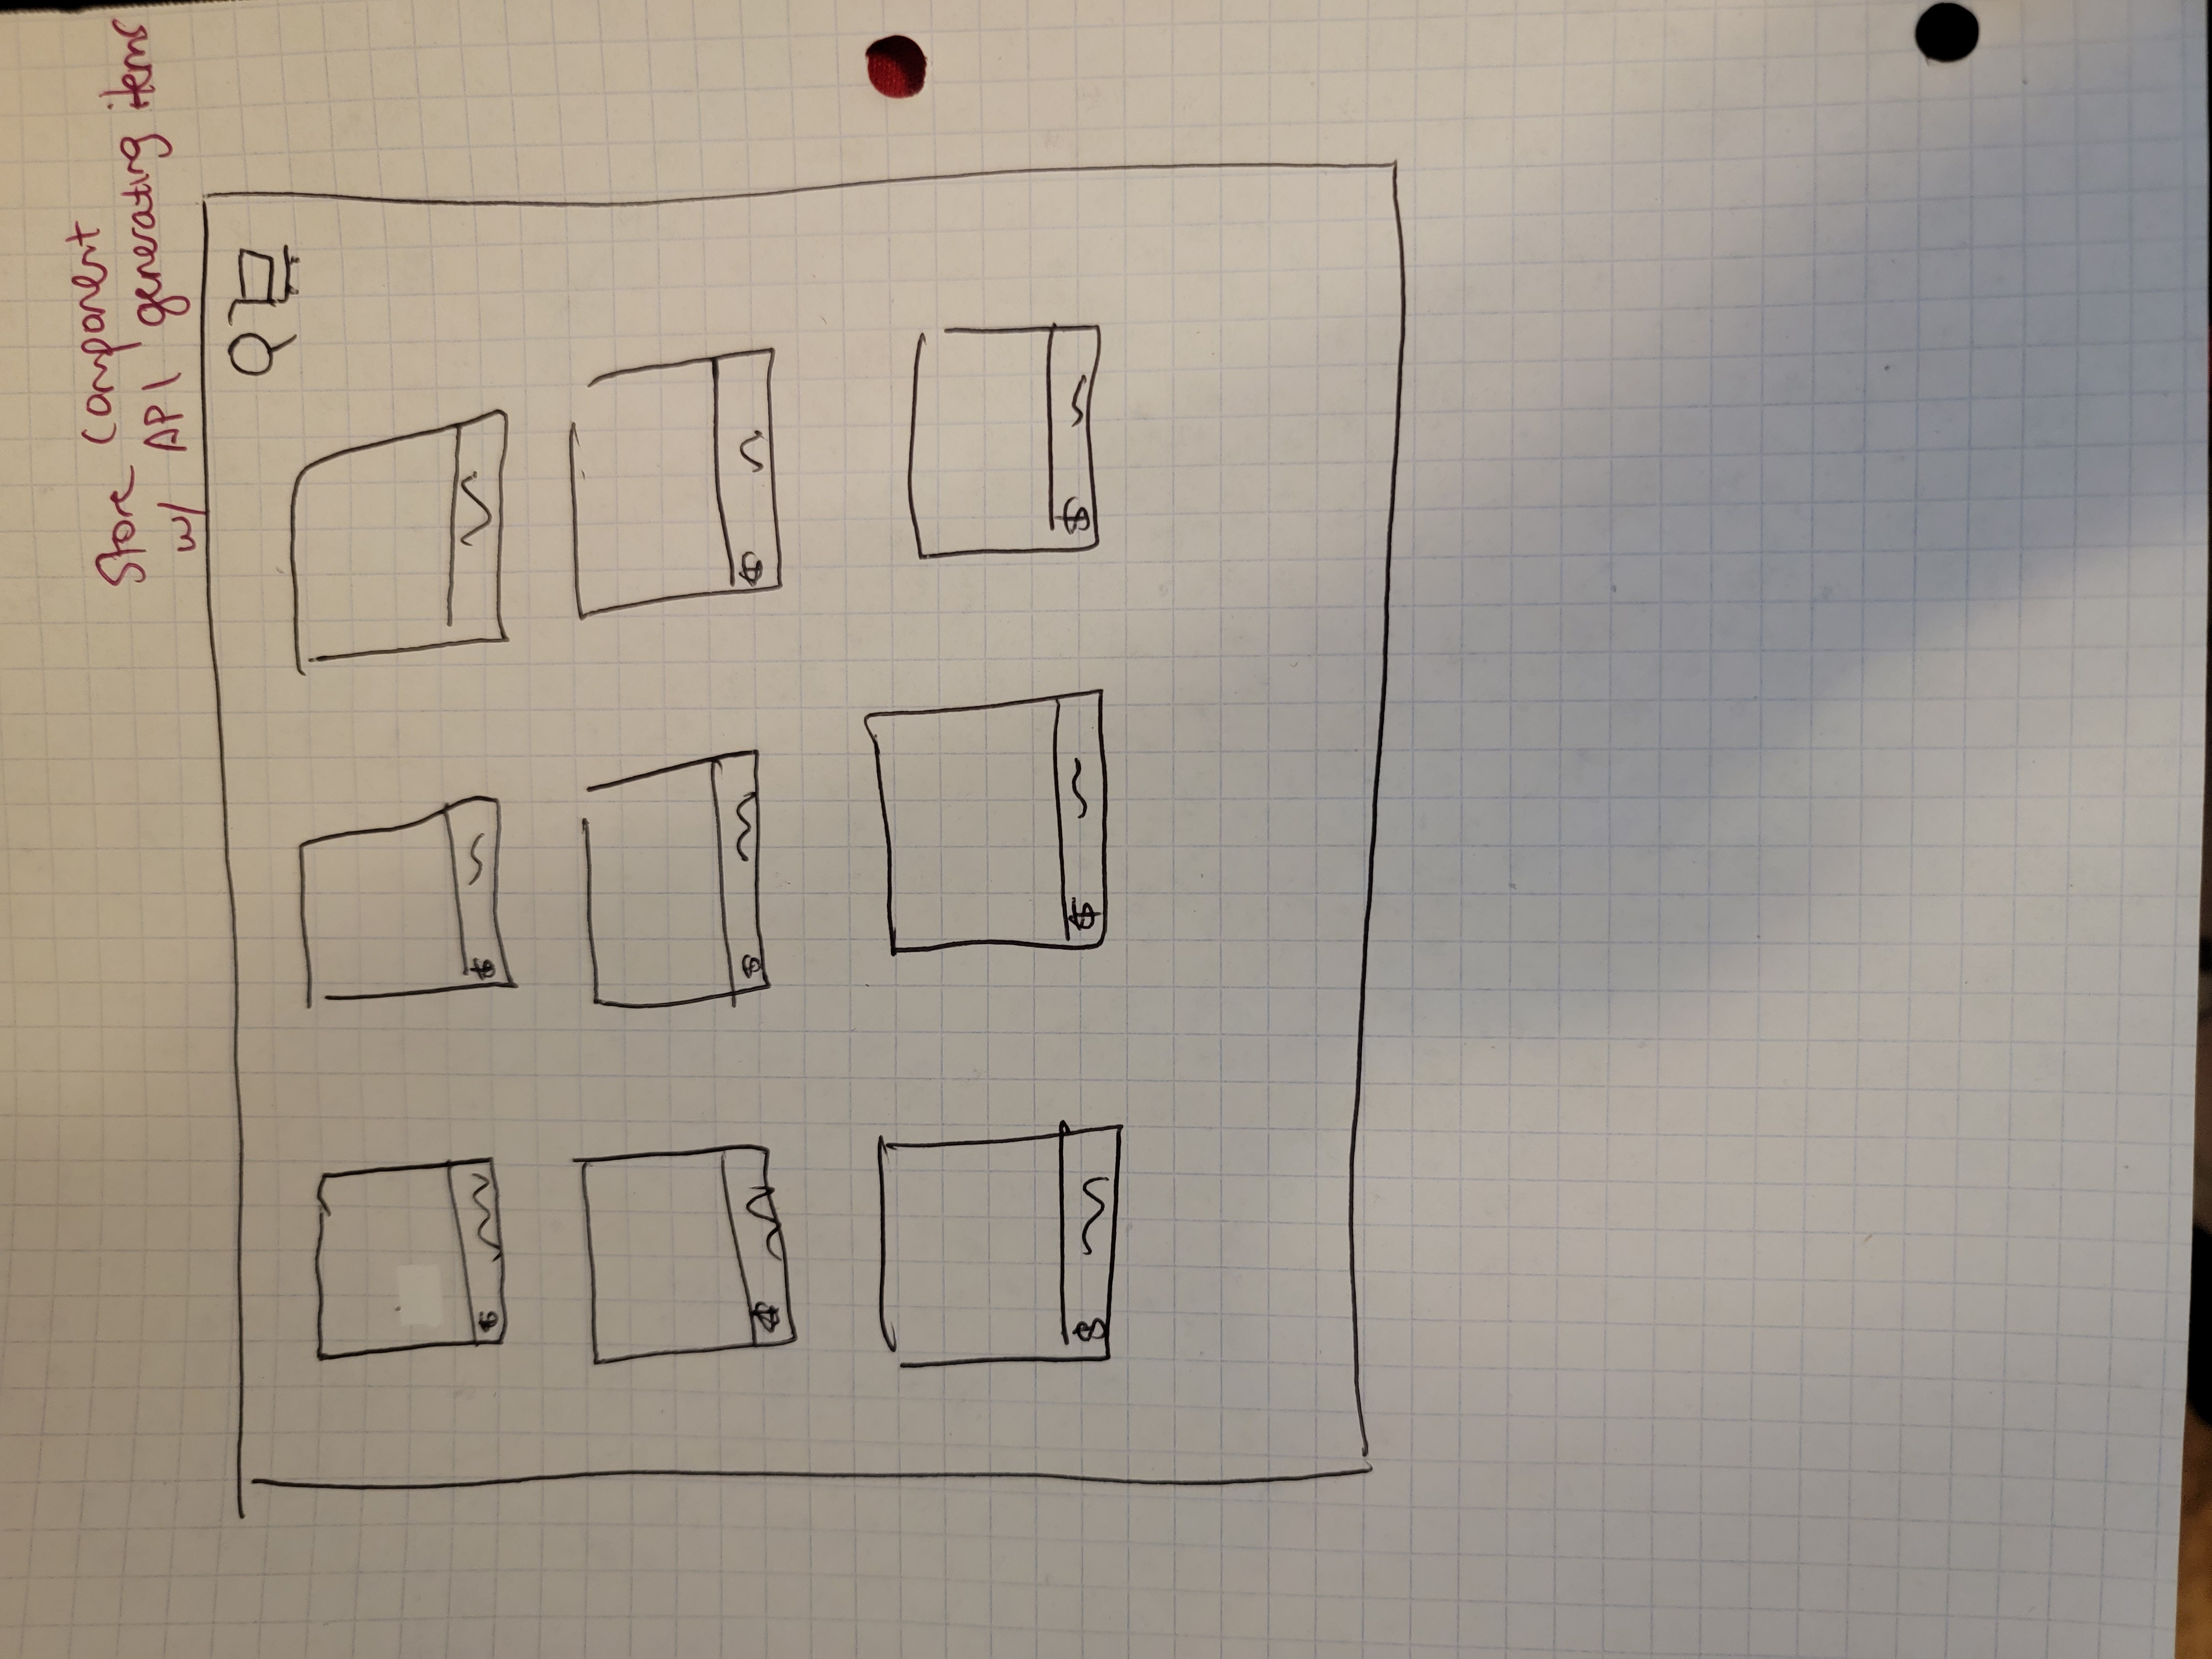 Store component
w/ API generating items
$
$
$
$
$
$
$
$